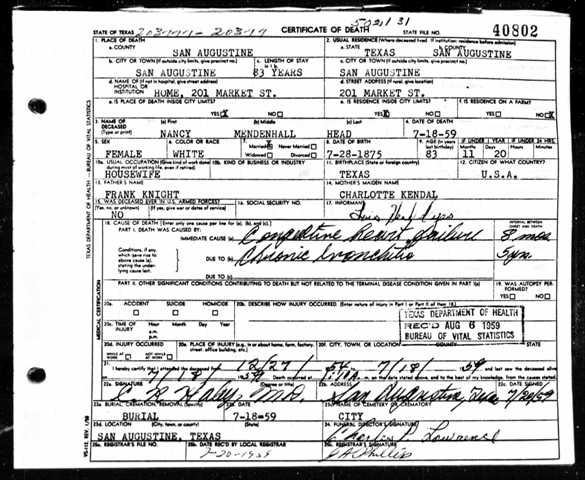 502131
STATE OF TEXAS CERTIFICATE OF DEATH STATE FILE NO. 40802
1. PLACE OF DEATH 2. USUAL RESIDENCE (Where deceased lived. If institution: residence before admission)
a. COUNTY SAN AUGUSTINE a. STATE TEXAS b. COUNTY SAN AUGUSTINE
b. CITY OR TOWN (If outside city limits, give precinct no.) c. LENGTH OF STAY c. CITY OR TOWN (If outside city limits, give precinct no.)
SAN AUGUSTINE 83 YEARS SAN AUGUSTINE
d. NAME OF (If not in hospital, give street address) HOSPITAL OR INSTITUTION d. STREET ADDRESS (If rural, give location)
HOME, 201 MARKET ST. 201 MARKET ST.
e. IS PLACE OF DEATH INSIDE CITY LIMITS? e. IS RESIDENCE INSIDE CITY LIMITS? f. IS RESIDENCE ON A FARM?
YES X NO YES X NO YES NO X
3. NAME OF DECEASED (Type or print) (a) First (b) Middle (c) Last 4. DATE OF DEATH
NANCY MENDENHALL HEAD 7-18-59
5. SEX 6. COLOR OR RACE 7. Married Never Married Widowed Divorced 8. DATE OF BIRTH 9. AGE (In years last birthday) IF UNDER 1 YEAR IF UNDER 24 HRS.
FEMALE WHITE 7-28-1875 83 11 20
10a. USUAL OCCUPATION (Give kind of work done during most of working life, even if retired) 10b. KIND OF BUSINESS OR INDUSTRY 11. BIRTHPLACE (State or foreign country) 12. CITIZEN OF WHAT COUNTRY?
HOUSEWIFE TEXAS U.S.A.
13. FATHER'S NAME 14. MOTHER'S MAIDEN NAME
FRANK KNIGHT CHARLOTTE KENDAL
15. WAS DECEASED EVER IN U.S. ARMED FORCES? 16. SOCIAL SECURITY NO. 17. INFORMANT
(Yes, no, or unknown) (If yes, give war or dates of service)
NO
18. CAUSE OF DEATH (Enter only one cause per line for (a), (b), and (c).) INTERVAL BETWEEN ONSET AND DEATH
PART I. DEATH WAS CAUSED BY:
IMMEDIATE CAUSE (a) Congestive heart failure 8 mos
Conditions, if any, which gave rise to above cause (a), stating the underlying cause last. DUE TO (b) Chronic bronchitis 5 yrs.
DUE TO (c)
PART II. OTHER SIGNIFICANT CONDITIONS CONTRIBUTING TO DEATH BUT NOT RELATED TO THE TERMINAL DISEASE CONDITION GIVEN IN PART I(a) 19. WAS AUTOPSY PERFORMED?
YES NO
20a. ACCIDENT SUICIDE HOMICIDE 20b. DESCRIBE HOW INJURY OCCURRED (Enter nature of injury in Part I or Part II of item 18.)
TEXAS DEPARTMENT OF HEALTH
REC'D AUG 6 1959
BUREAU OF VITAL STATISTICS
20c. TIME OF INJURY Hour Month Day Year a.m. p.m.
20d. INJURY OCCURRED WHILE AT WORK NOT WHILE AT WORK 20e. PLACE OF INJURY (e.g., in or about home, farm, factory, street, office building, etc.) 20f. CITY, TOWN, OR LOCATION COUNTY STATE
21. I hereby certify that I attended the deceased from 12/27 7/18 and last saw the deceased alive
Death occurred at m. on the date stated above, and to the best of my knowledge, from the causes stated.
22a. SIGNATURE (Degree or title) 22b. ADDRESS 22c. DATE SIGNED
C R Haley MD San Augustine, Texas
23a. BURIAL, CREMATION, REMOVAL (Specify) 23b. DATE 23c. NAME OF CEMETERY OR CREMATORY
BURIAL 7-18-59 CITY
23d. LOCATION (City, town, or county) (State) 24. FUNERAL DIRECTOR'S SIGNATURE
SAN AUGUSTINE, TEXAS Charles P. Lawrence
25a. REGISTRAR'S FILE NO. 25b. DATE REC'D BY LOCAL REGISTRAR 25c. REGISTRAR'S SIGNATURE
7-20-1959 Phillips
TEXAS DEPARTMENT OF HEALTH — BUREAU OF VITAL STATISTICS
MEDICAL CERTIFICATION